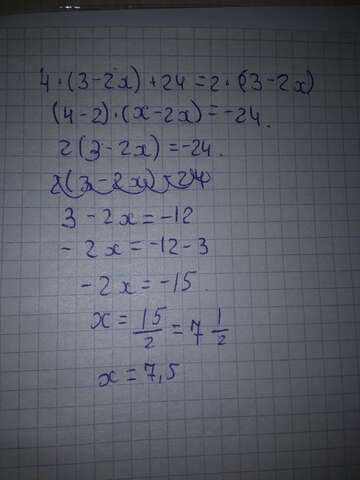 4·(3-2x)+24=2·(3-2x)
(4-2)·(x-2x)=-24.
2(3-2x)=-24.
3-2x=-12
-2x=-12-3
-2x=-15.
x=15/2=7 1/2
x=7,5